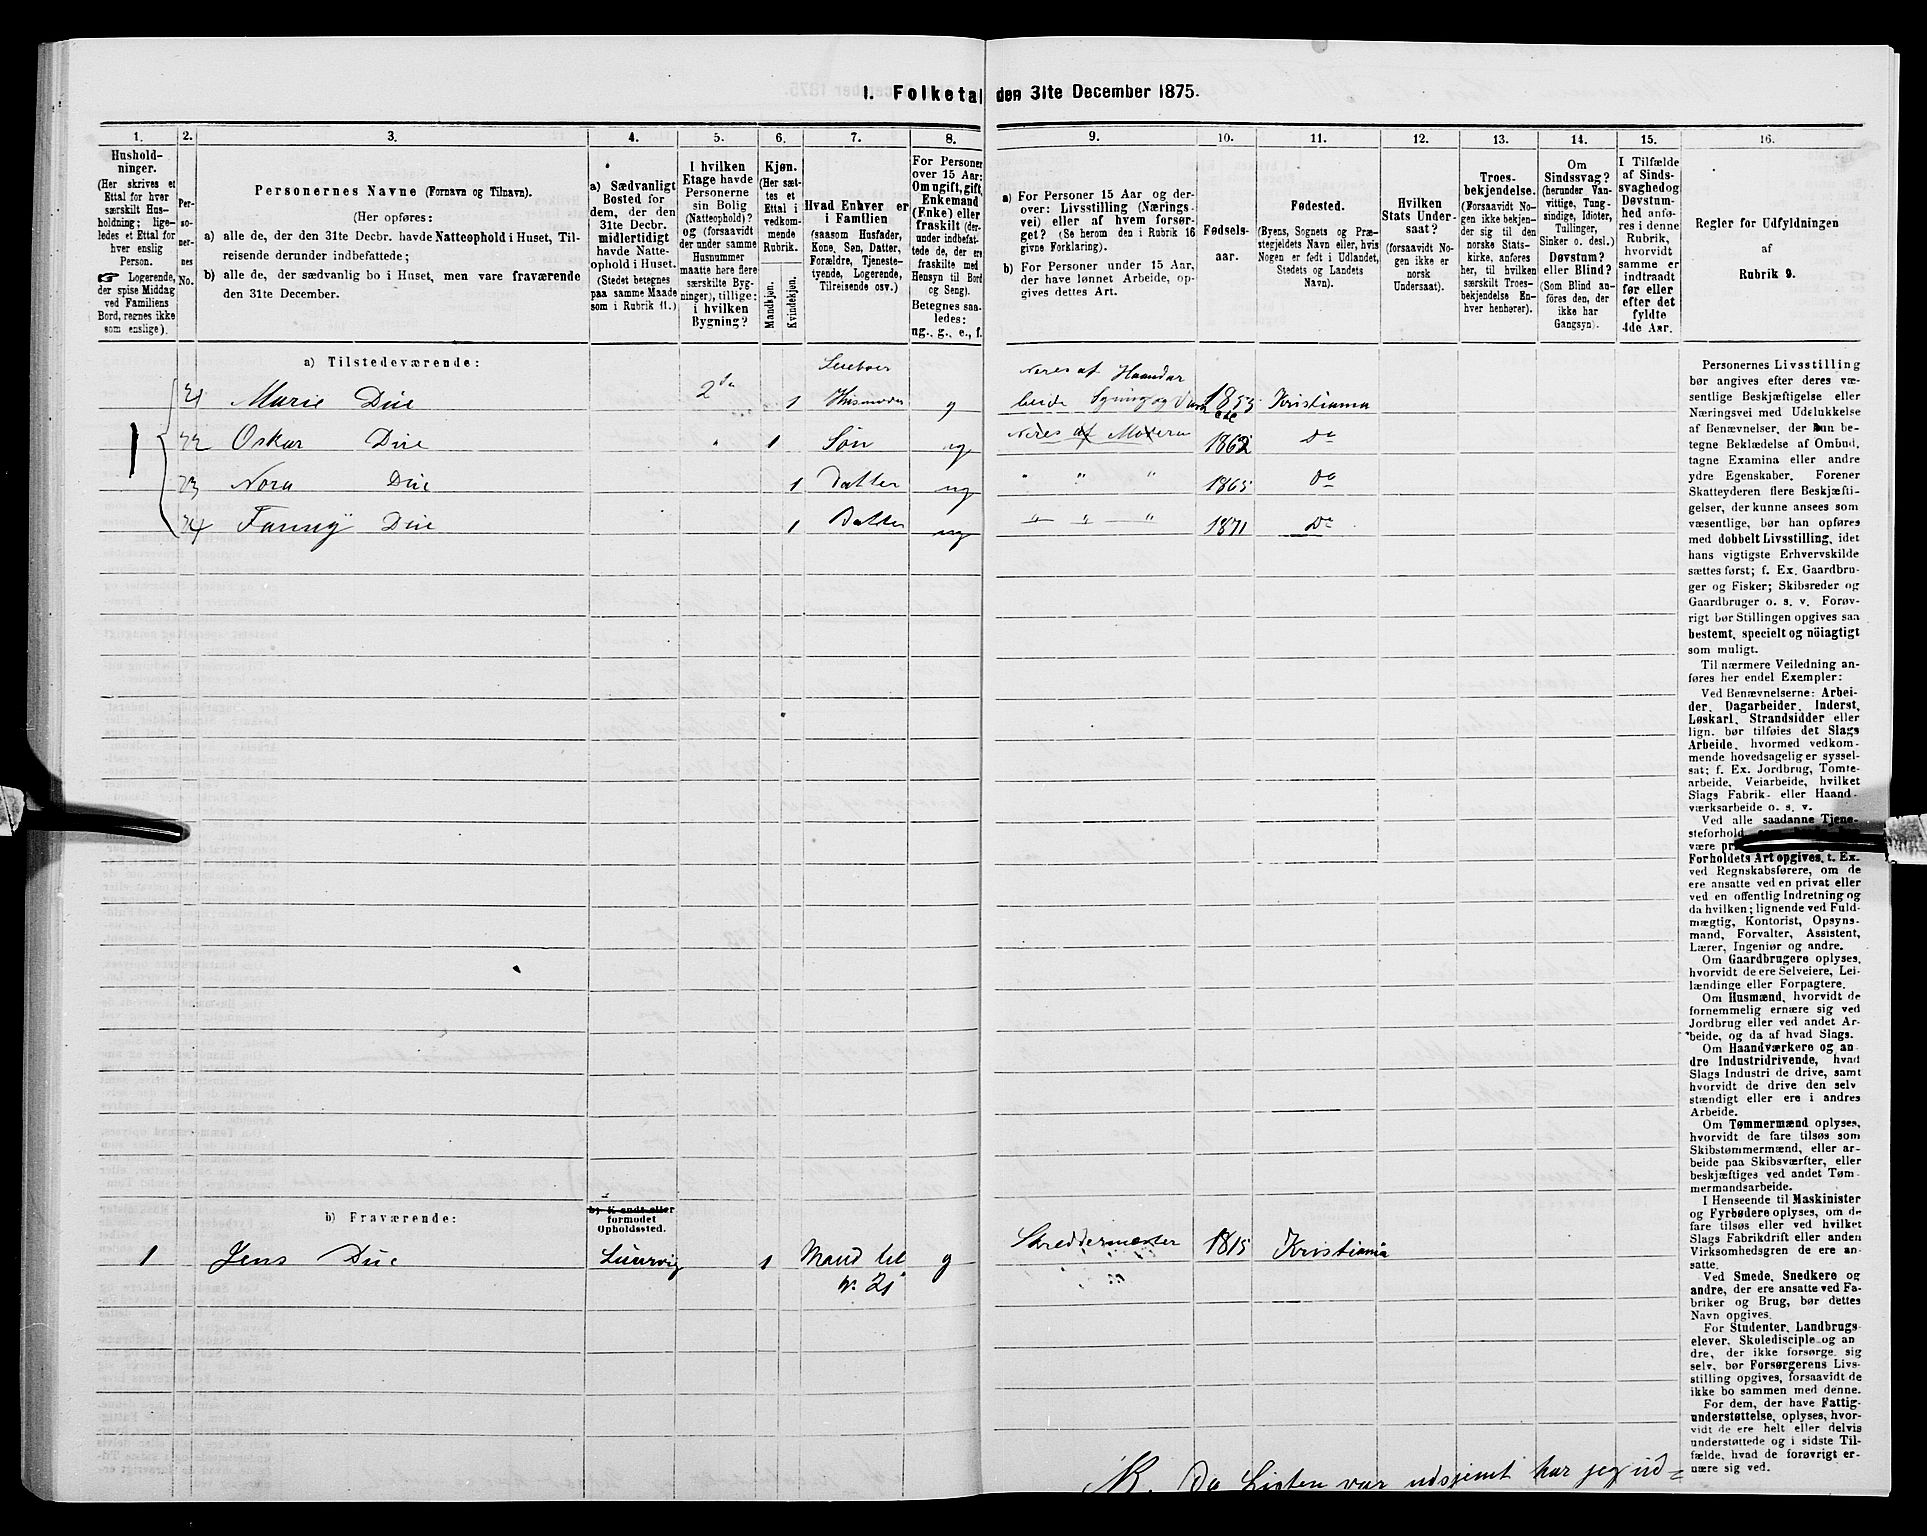 1. Folketal den 31te December 1875.
1. 2. 3. 4. 5. 6. 7. 8. 9. 10. 11. 12. 13. 14. 15. 16.
Hushold-
ninger.
(Her skrives et
Ettal for hver
særskilt Hus-
holdning; lige-
ledes et Ettal for
hver enslig
Person.
☞ Logerende,
der spise Middag
ved Familiens
Bord, regnes ikke
som enslige).
Per-
so-
ner-
nes
No.
Personernes Navne (Fornavn og Tilnavn).
(Her opføres:
a) alle de, der den 31te Decbr. havde Natteophold i Huset, Til-
reisende derunder indbefattede;
b) alle de, der sædvanlig bo i Huset, men vare fraværende
den 31te December.
a) Sædvanligt
Bosted for
dem, der den
31te Decbr.
midlertidigt
havde Natte-
ophold i Huset.
(Stedet betegnes
paa samme Maade
som i Rubrik 11.)
I hvilken
Etage havde
Personerne
sin Bolig
(Natteophold)?
og (forsaavidt
der under samme
Husnummer
maatte høre flere
særskilte Byg-
ninger), tillige:
i hvilken
Bygning?
Kjøn.
(Her sæt-
tes et
Ettal i
vedkom-
mende
Rubrik.
Mandkjøn.
Kvindekjøn.
Hvad Enhver er
i Familien
(saasom Husfader,
Kone, Søn, Datter,
Forældre, Tjeneste-
tyende, Logerende,
Tilreisende osv.)
For Personer
over 15 Aar:
Om ugift, gift,
Enkemand
(Enke) eller
fraskilt (der-
under indbefat-
tede de, der ere
fraskilte med
Hensyn til Bord
og Seng).
Betegnes saa-
ledes:
ug., g., e., f.
a) For Personer 15 Aar og der-
over: Livsstilling (Nærings-
vei) eller af hvem forsør-
get? (Se herom den i Rubrik 16
givne Forklaring).
b) For Personer under 15 Aar,
der have lønnet Arbeide, op-
gives dettes Art.
Fødsels-
aar.
Fødested.
(Byens, Sognets og Præ-
stegjeldets Navn eller, hvis
Nogen er født i Udlandet,
Stedets og Landets
Navn).
Hvilken
Stats Under-
saat?
(forsaavidt No-
gen ikke er
norsk
Undersaat).
Troes-
bekjendelse.
(Forsaavidt No-
gen ikke bekjen-
der sig til den
norske Stats-
kirke, anføres
her, til hvilken
særskilt Troes-
bekjendelse En-
hver henhører).
Om
Sindssvag?
(herunder Van-
vittige, Tung-
sindige, Idioter,
Tullinger,
Sinker o. desl.)
Døvstum?
eller Blind?
(Som Blind an-
føres den, der
ikke har
Gangsyn).
I Tilfælde
af Sinds-
svaghed og
Døvstum-
hed anfø-
res i denne
Rubrik,
hvorvidt
samme er
indtraadt
før eller
efter det
fyldte
4de Aar.
Regler for Udfyldningen
af
Rubrik 9.
a) Tilstedeværende:
21 Marie Due 2da 1 Leieboer Husmoder g Næres af Haandar
beide Syning og 1853 Kristiania
1 22 Oskar Due " 1 Søn ug Næres af Modren 1862 Do
23 Nora Due 1 Datter ug " " " 1865 Do
24 Fanny Due 1 Datter ug " " " 1871 Do
b) Fraværende:
b) Kjendt eller
formodet
Opholdssted.
1 Jens Due Laurvig 1 Mand til
N. 21 g Skreddermester 1815 Kristiania
Personernes Livsstilling
bør angives efter deres væ-
sentlige Beskjæftigelse eller
Næringsvei med Udelukkelse
af Benævnelser, der kun be-
tegne Beklædelse af Ombud,
tagne Examina eller andre
ydre Egenskaber. Forener
Skatteyderen flere Beskjæfti-
gelser, der kunne ansees som
væsentlige, bør han opføres
med dobbelt Livsstilling, idet
hans vigtigste Erhvervskilde
sættes først; f. Ex. Gaardbru-
ger og Fisker; Skibsreder og
Gaardbruger o. s. v. Forøv-
rigt bør Stillingen opgives saa
bestemt, specielt og nöiagtigt
som muligt.
Til nærmere Veiledning an-
føres her endel Exempler:
Ved Benævnelserne: Arbei-
der, Dagarbeider, Inderst,
Løskarl, Strandsidder eller
lign. bør tilføies det Slags
Arbeide, hvormed vedkom-
mende hovedsagelig er syssel-
sat; f. Ex. Jordbrug, Tomte-
arbeide, Veiarbeide, hvilket
Slags Fabrik- eller Haand-
værksarbeide o. s. v.
Ved alle saadanne Tjene-
steforhold
være
Forholdets Art opgives, t. Ex.
ved Regnskabsførere, om de
ere ansatte ved en privat eller
ved en offentlig Indretning og
da hvilken; lignende ved Fuld-
mægtig, Kontorist, Opsyns-
mand, Forvalter, Assistent,
Lærer, Ingeniør og andre.
Om Gaardbrugere oplyses,
hvorvidt de ere Selveiere, Lei-
lændinge eller Forpagtere.
Om Husmænd, hvorvidt de
fornemmelig ernære sig ved
Jordbrug eller ved andet Ar-
beide, og da af hvad Slags.
Om Haandværkere og an-
dre Industridrivende, hvad
Slags Industri de drive, samt
hvorvidt de drive den selv-
stændigt eller ere i andres
Arbeide.
Om Tømmermænd oplyses,
hvorvidt de fare tilsøs som
Skibstømmermænd, eller ar-
beide paa Skibsværfter, eller
beskjæftiges ved andet Tøm-
mermandsarbeide.
I Henseende til Maskinister
og Fyrbødere oplyses, om de
fare tilsøs eller ved hvilket
Slags Fabrikdrift eller anden
Virksomhedsgren de ere an-
satte.
Ved Smede, Snedkere og
andre, der ere ansatte ved Fa-
briker og Brug, bør dettes
Navn opgives.
For Studenter, Landbrugs-
elever, Skoledisciple og an-
dre, der ikke forsørge sig
selv, bør Forsørgerens Livs-
stilling opgives, forsaavidt de
ikke bo sammen med denne.
For dem, der have Fattig-
understøttelse, oplyses, hvor-
vidt de ere helt eller delvis
understøttede og i sidste Til-
fælde, hvad de forøvrigt er-
nære sig ved.
NB. Da Listen var udsjemt har jeg ud=